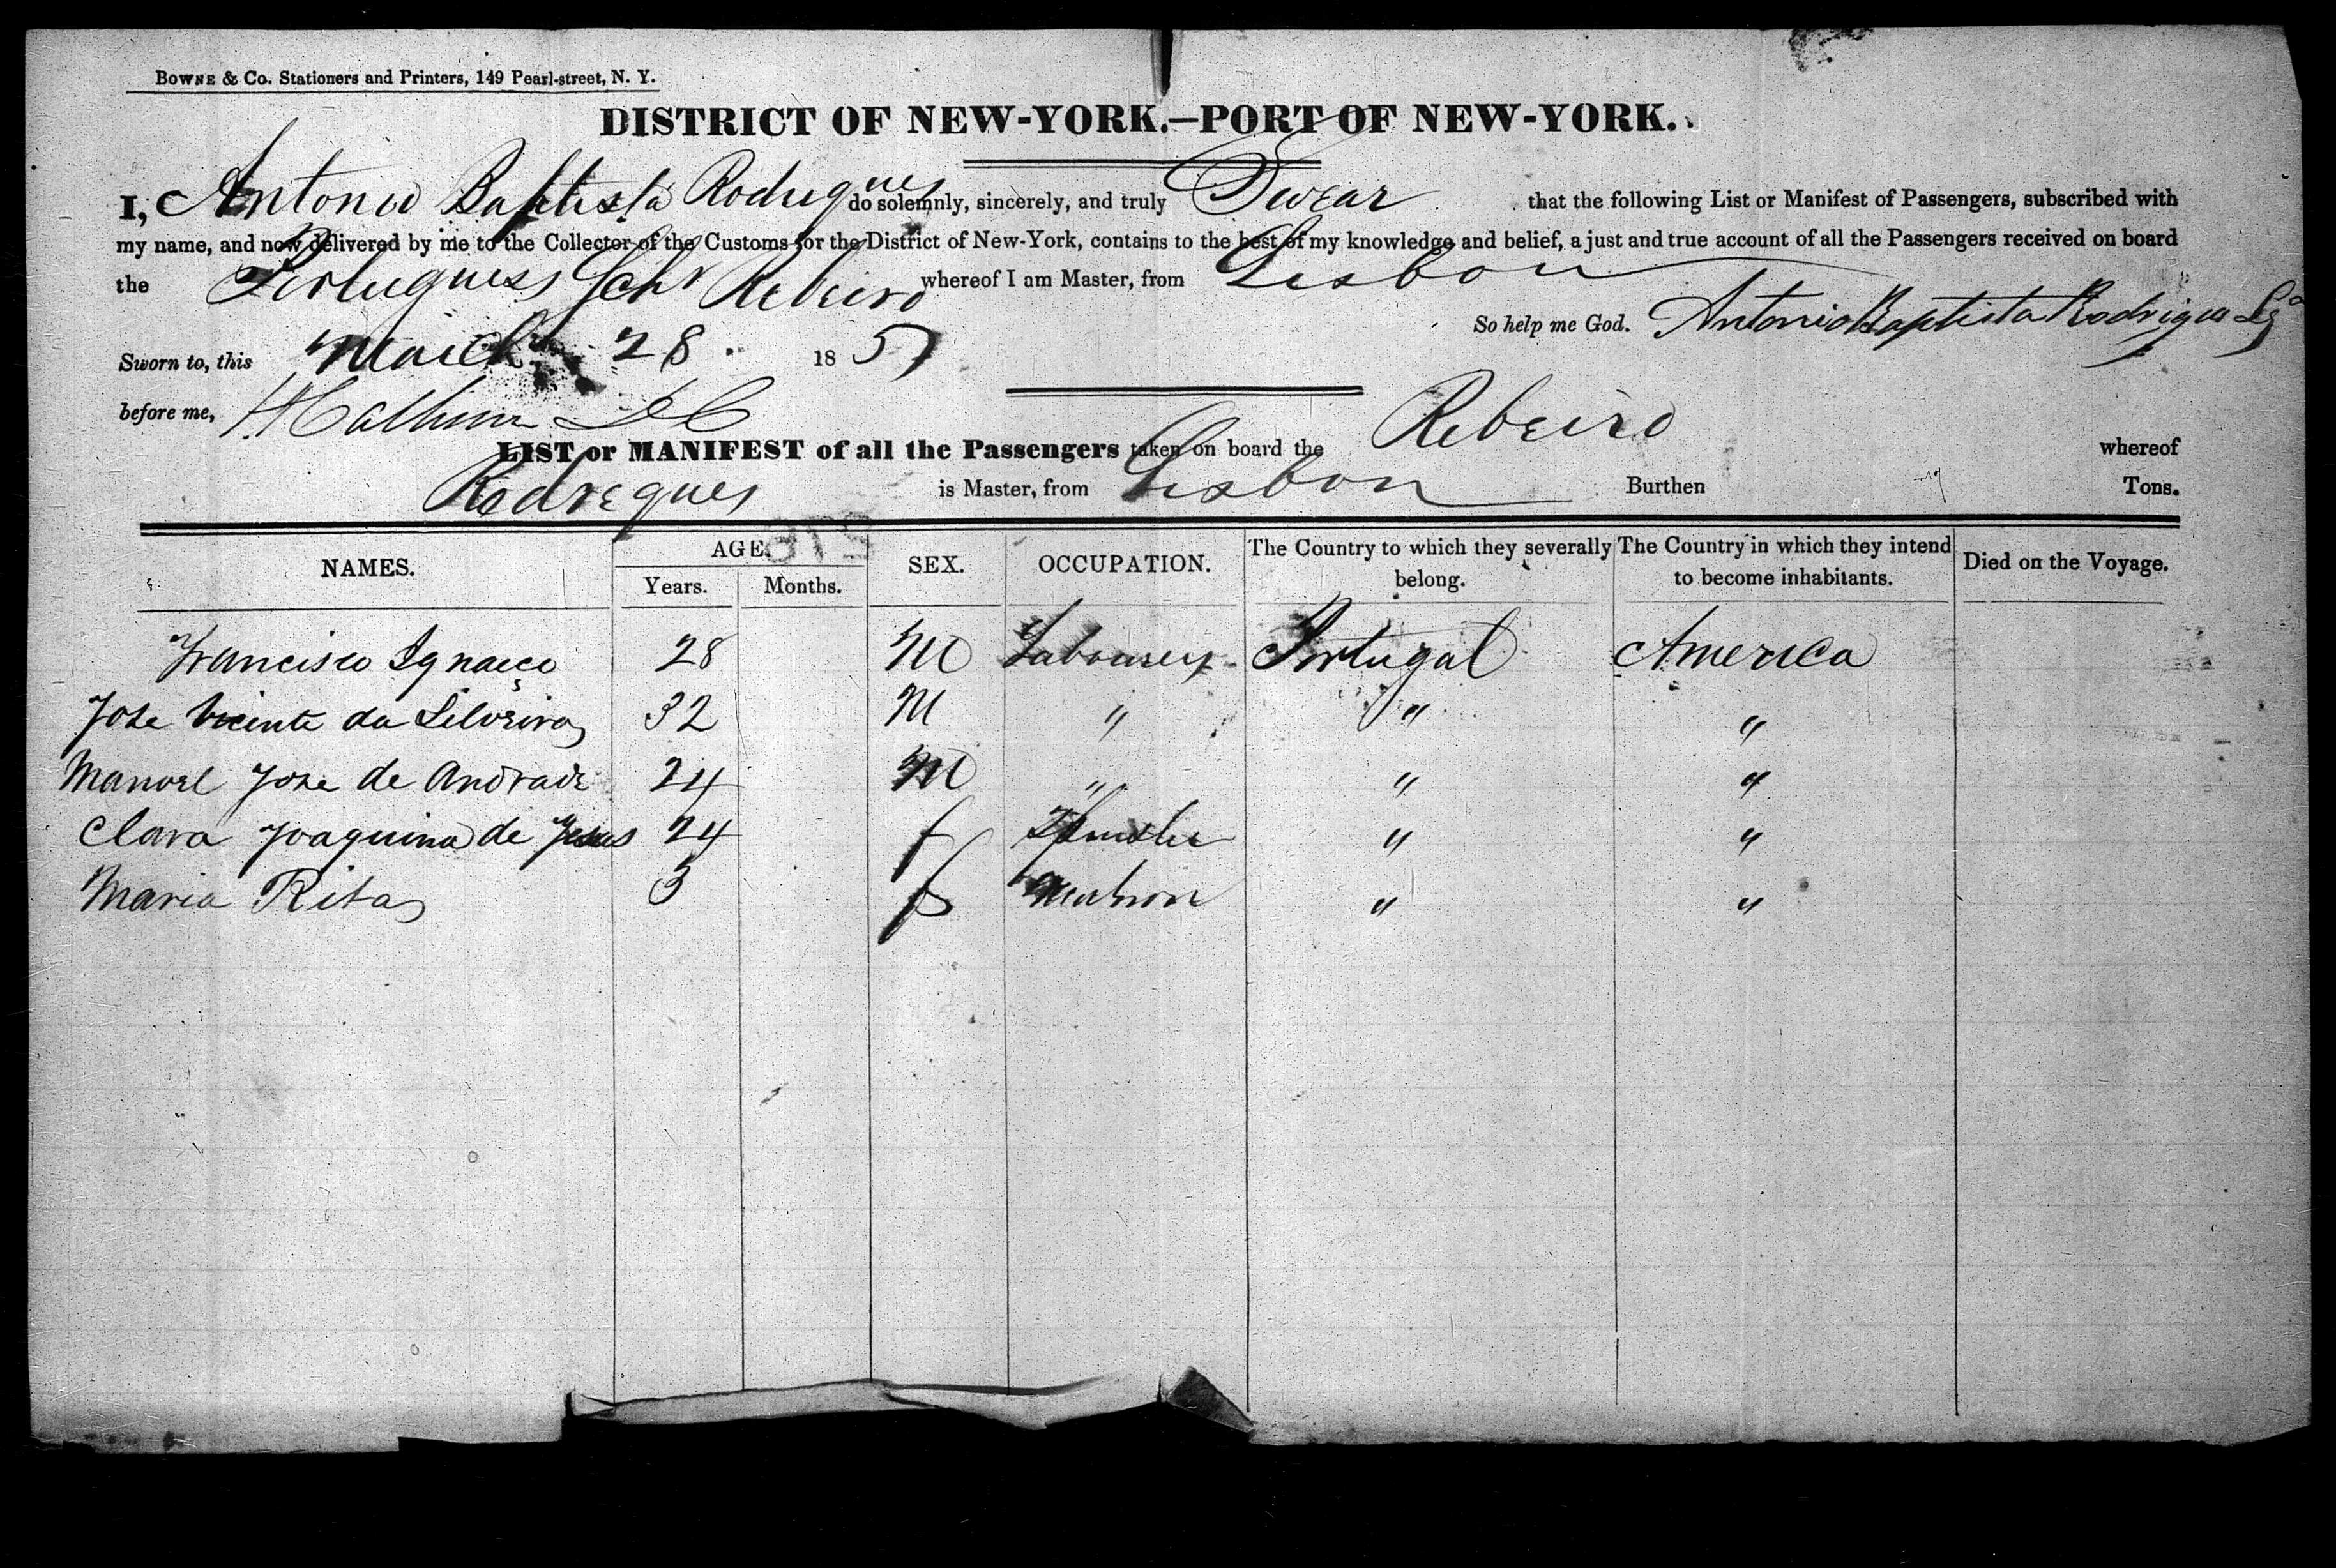 BOWNE & Co. Stationers and Printers, 149 Pearl-street, N. Y.
DISTRICT OF NEW-YORK.—PORT OF NEW-YORK.
I, Antonio Baptista Rodrigues do solemnly, sincerely, and truly Swear that the following List or Manifest of Passengers, subscribed with
my name, and now delivered by me to the Collector of the Customs for the District of New-York, contains to the best of my knowledge and belief, a just and true account of all the Passengers received on board
the Portuguess Schr Rebeiro whereof I am Master, from Lisbon
So help me God. Antonio Baptista Rodrigues
Sworn to, this March 28 185
before me, H Calhoun DC
LIST or MANIFEST of all the Passengers taken on board the Rebeiro whereof
Rodregues is Master, from Lisbon Burthen Tons.
NAMES. AGE. SEX. OCCUPATION. The Country to which they severally belong. The Country in which they intend to become inhabitants. Died on the Voyage.
Years. Months.
Francisco Ignacço 28 M Labourer Portugal America
Jose Vicente da Silveira 32 M " " "
Manoel Jose de Andrade 24 M " " "
Clara Joaquina de Jesus 24 f " "
Maria Rita 3 f " "